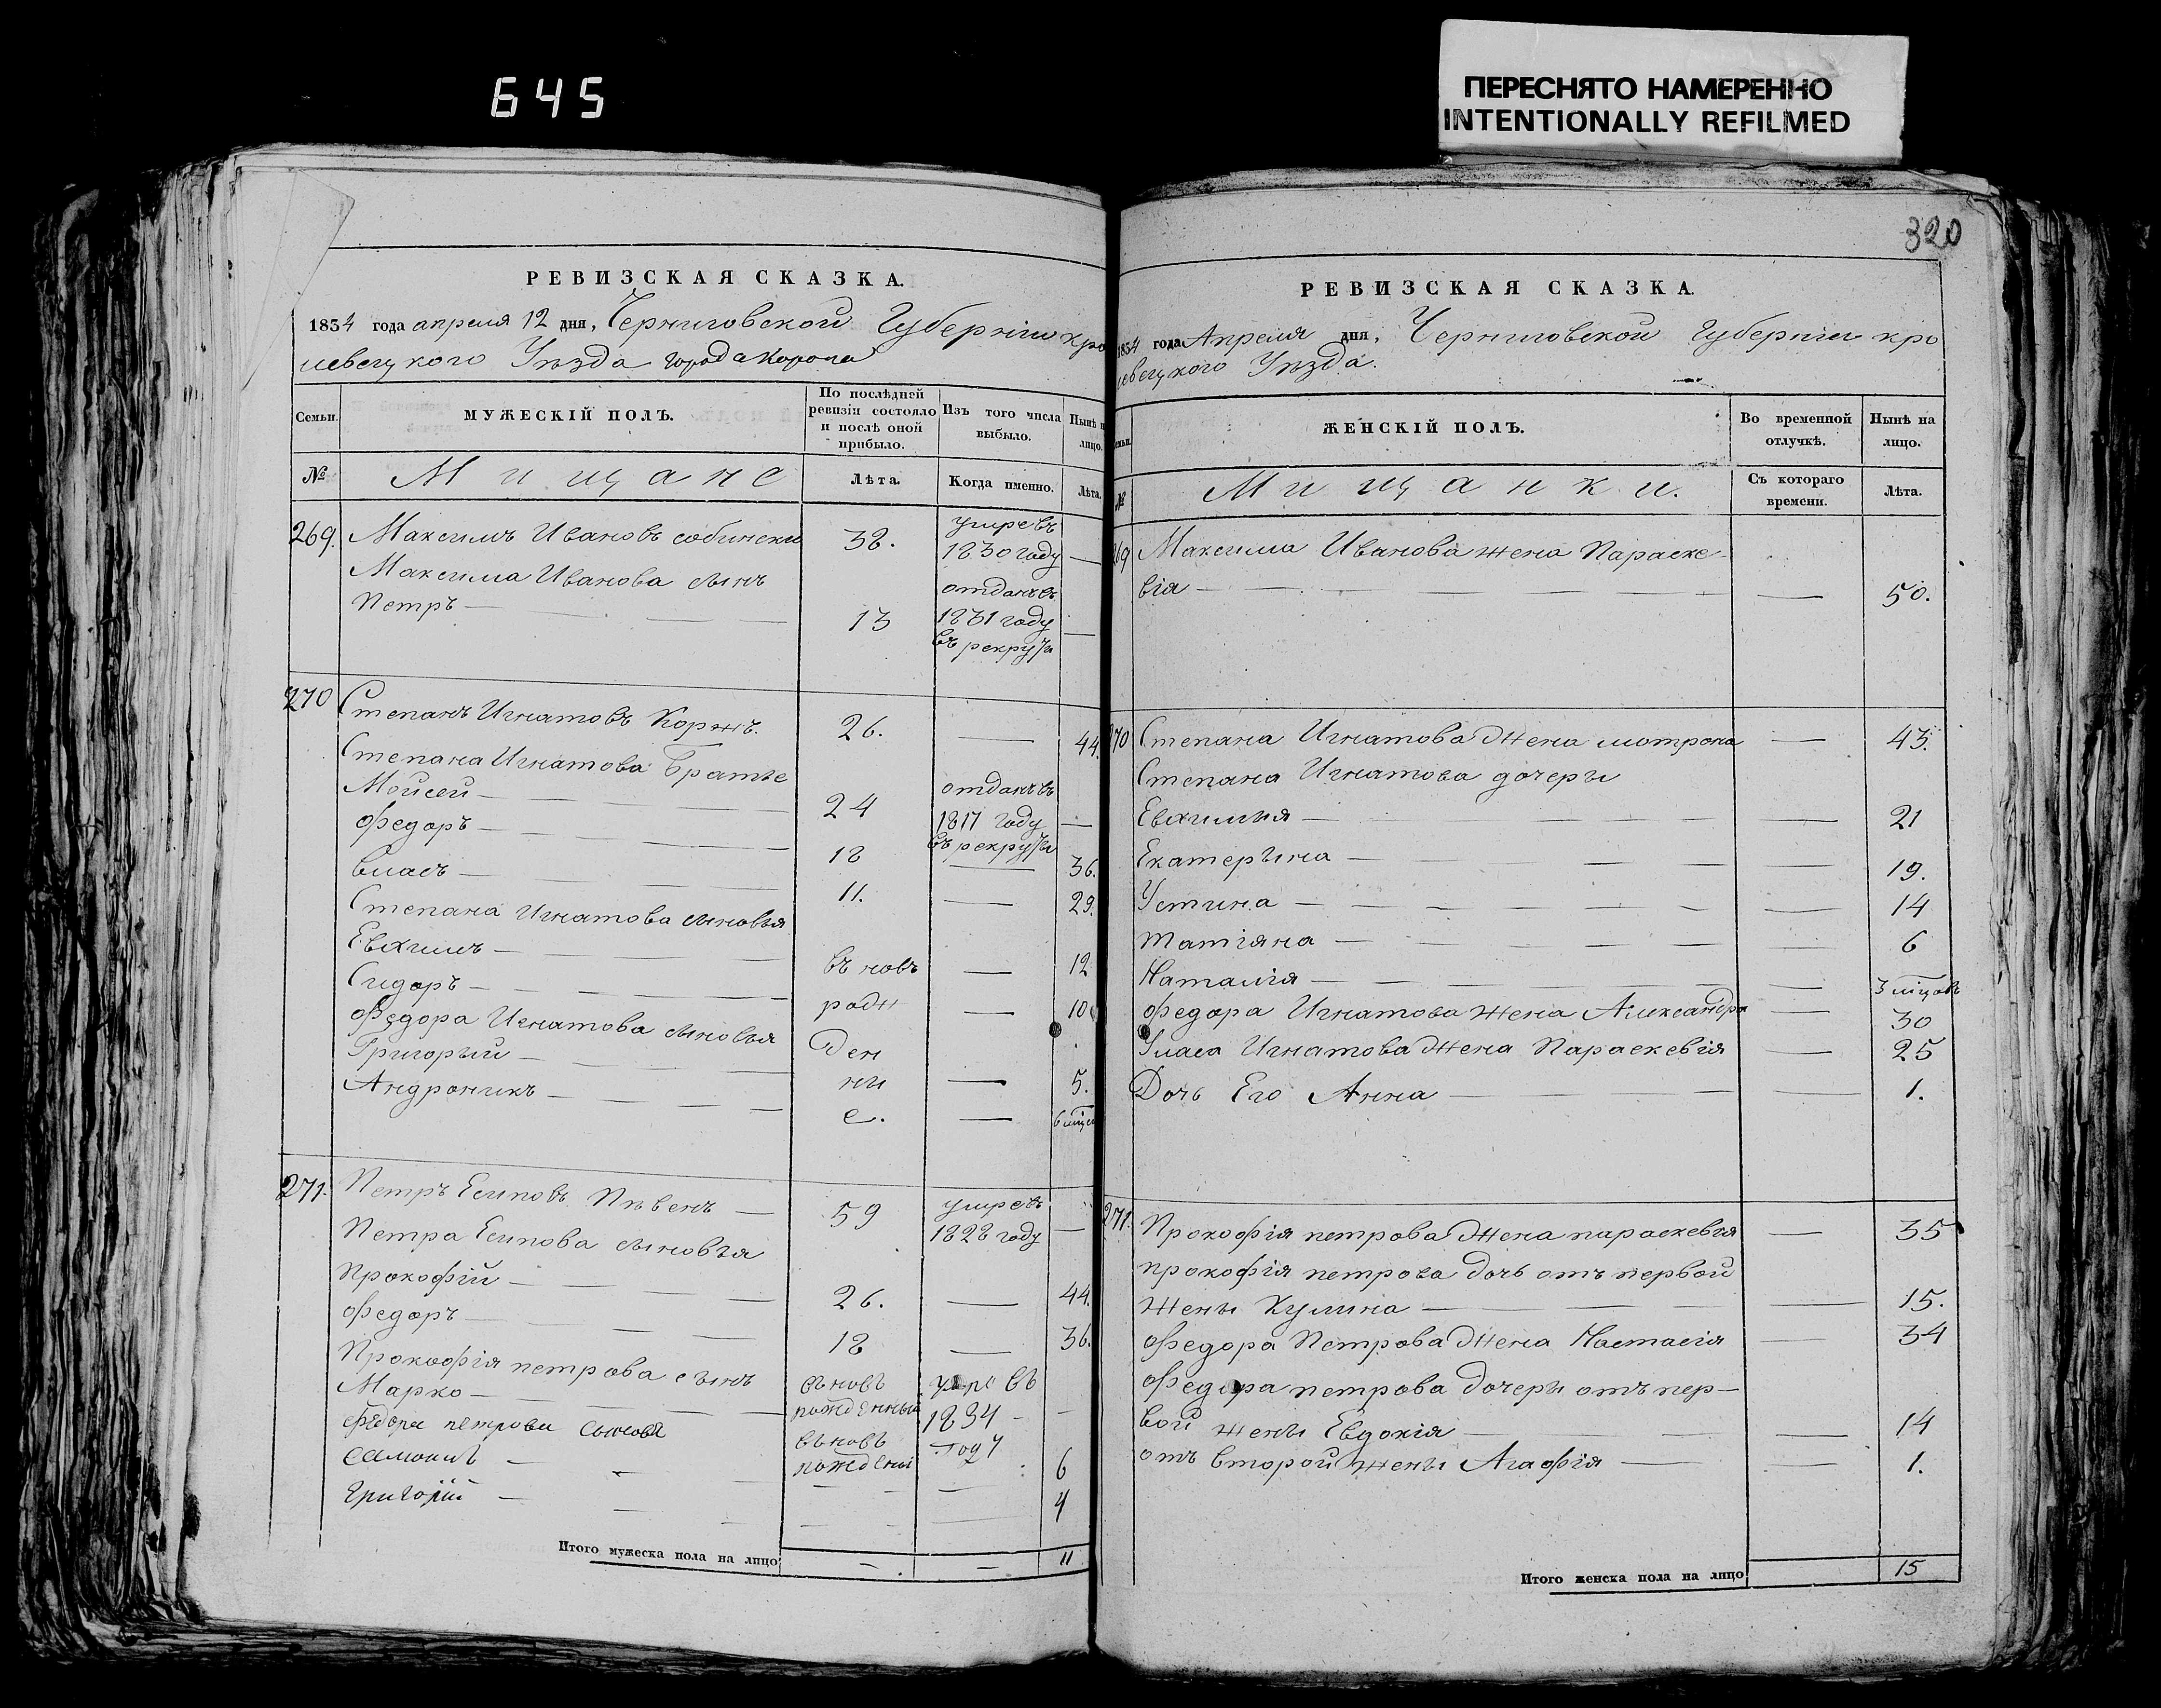 645
ПЕРЕСНЯТО НАМЕРЕННО
INTENTIONALLY REFILMED
РЕВИЗСКАЯ СКАЗКА.
1834 года апреля 12 дня, Черниговской Губерніи кро
левецкого Уѣзда города Коропа
Семьи.
МУЖЕСКІЙ ПОЛЪ.
По послѣдней
ревизіи состояло
и послѣ оной
прибыло.
Изъ того числа
выбыло.
Нынѣ н
лицо.
№
Мищане
Лѣта.
Когда именно.
Лѣта.
269. Максимъ Ивановъ 38. умре въ
1830 году —
Максима Иванова сынъ
Петръ — 13 отданъ въ
1831 году
въ рекруты —
270 Степанъ Игнатовъ Коржъ. 26. — 44.
Степана Игнатова Братье
Мойсей — 24 отданъ въ
1817 году
въ рекруты —
Федоръ — 18 — 36.
Власъ — 11. — 29.
Степана Игнатова сыновья
Евхимъ — въ новъ — 12
Сидоръ — рож — 10
Федора Игнатова сыновья ден
Григорый — ны — 5.
Андроникъ — е. — 6 мцов
271. Петръ Есиповъ Пѣвень — 59 умре въ
1828 году —
Петра Есипова сыновъя
Прокофій — 26. — 44.
Федоръ — 18 — 36.
Прокофія петрова сынъ
Марко — въ новъ
рожденный умре въ
1834
году —
Федора петрова сыновя въ новъ
рождены
Самоилъ — 6
Григорій — 4
Итого мужеска пола на лицо — — 11
320
РЕВИЗСКАЯ СКАЗКА.
1834 года Апреля дня, Черниговской Губерніи кро
левецкого Уѣзда.
ЖЕНСКІЙ ПОЛЪ.
Во временной
отлучкѣ.
Нынѣ на
лицо.
№
Мищанки.
Съ котораго
времени.
Лѣта.
269 Максима Иванова жена Параске-
вія — — 50.
270 Степана Игнатова Жена мотрона — 43.
Степана Игнатова дочеры
Евхимия — — 21
Екатерына — — 19.
Устина — — 14
Татіяна — — 6
Наталія — — 3 мцов
Федора Игнатова жена Александра — 30
Власа Игнатова Жена Параскевія — 25
Дочь Его Анна — — 1.
271. Прокофія петрова Жена параскевія — 35
прокофія петрова дочь отъ первой
жены Кулина — — 15.
Федора Петрова Жена Настасія — 34
Федора петрова дочеры отъ пер—
вой жены Евдокія — — 14
отъ второй жены Агафія — — 1.
Итого женска пола на лицо 15